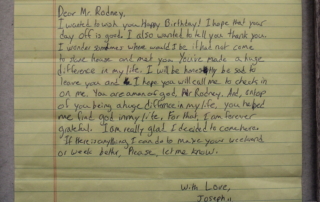 Dear Mr Rodney,
I wanted to wish you Happy Birthday! I hope that your
day off is good. I also wanted to tell you thank you
I wander sometimes where would I be if I had not come
to house and met you. You've made a huge
difference in my life. I will be honestly be sad to
leave you and I hope you will call me to check in
on me. You are a man of god Mr Rodney. And, on top
of you being a huge difference in my life, you helped
me find god in my life. For that, I am forever
grateful. I am really glad I decided to come here.
If there is anything I can do to make your weekend
or week better, Please, let me know.
With Love,
Joseph